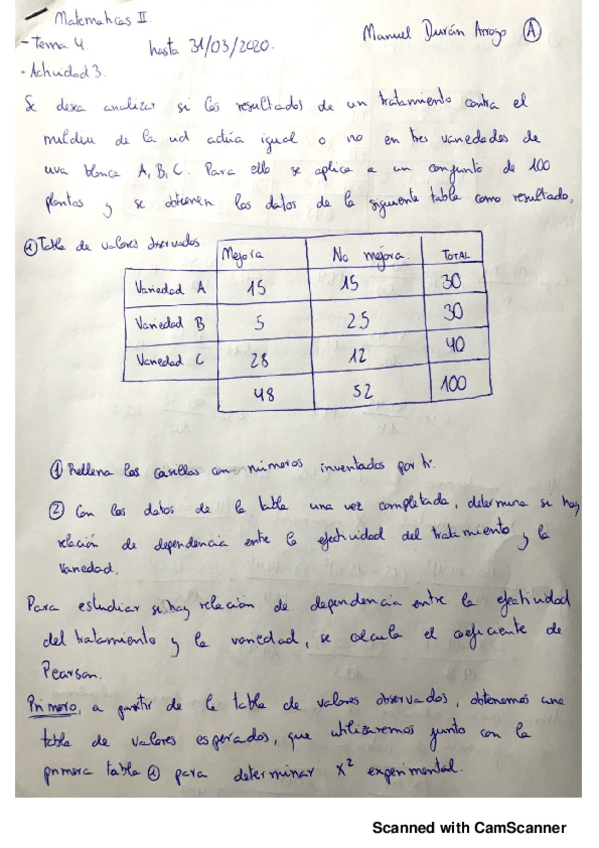 Matematicas II
- Tema 4. hasta 31/03/2020. Manuel Durán Arroyo A
· Actividad 3.
Se desea analizar si los resultados de un tratamiento contra el
mildiu de la vid actúa igual o no en tres variedades de
uva blanca A, B, C. Para ello se aplica a un conjunto de 100
plantas y se obtienen los datos de la siguiente tabla como resultado.
① Tabla de valores observados
Mejora No mejora. TOTAL
Variedad A 15 15 30
Variedad B 5 25 30
Variedad C 28 12 40
48 52 100
① Rellena las casillas con números inventados por ti.
② Con los datos de la tabla una vez completada, determina si hay
relación de dependencia entre la efectividad del tratamiento y la
variedad.
Para estudiar si hay relación de dependencia entre la efectividad
del tratamiento y la variedad, se calcula el coeficiente de
Pearson.
Primero, a partir de la tabla de valores observados, obtenemos una
tabla de valores esperados, que utilizaremos junto con la
primera tabla ① para determinar X² experimental.
Scanned with CamScanner